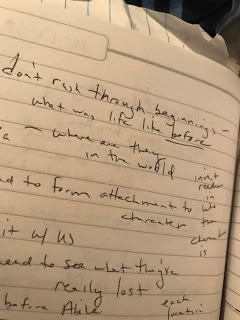 don't rush through beginnings –
what was life like before
– where are they
in the world
invest
readers
in who
the
character
is
to form attachment to
character
it w/ us
need to see what they've
really lost
before
each